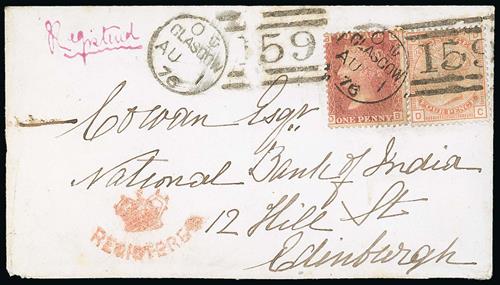 Registered
O U
GLASGOW
AU 1
76
159
O U
GLASGOW
AU 1
76
159
ONE PENNY
B
FOUR PENCE
O C
Cowan Esqr
National Bank of India
12 Hill St
Edinburgh
REGISTERED